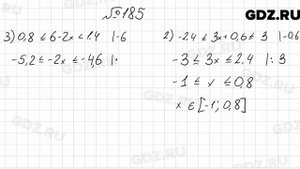 GDZ.RU
№185
3) 0,8 ≤ 6-2x ≤ 1,4 |-6
-5,2 ≤ -2x ≤ -4,6 |·
2) -2,4 ≤ 3x + 0,6 ≤ 3 |-0,6
-3 ≤ 3x ≤ 2,4 |: 3
-1 ≤ x ≤ 0,8
x ∈ [-1; 0,8]
GDZ.RU